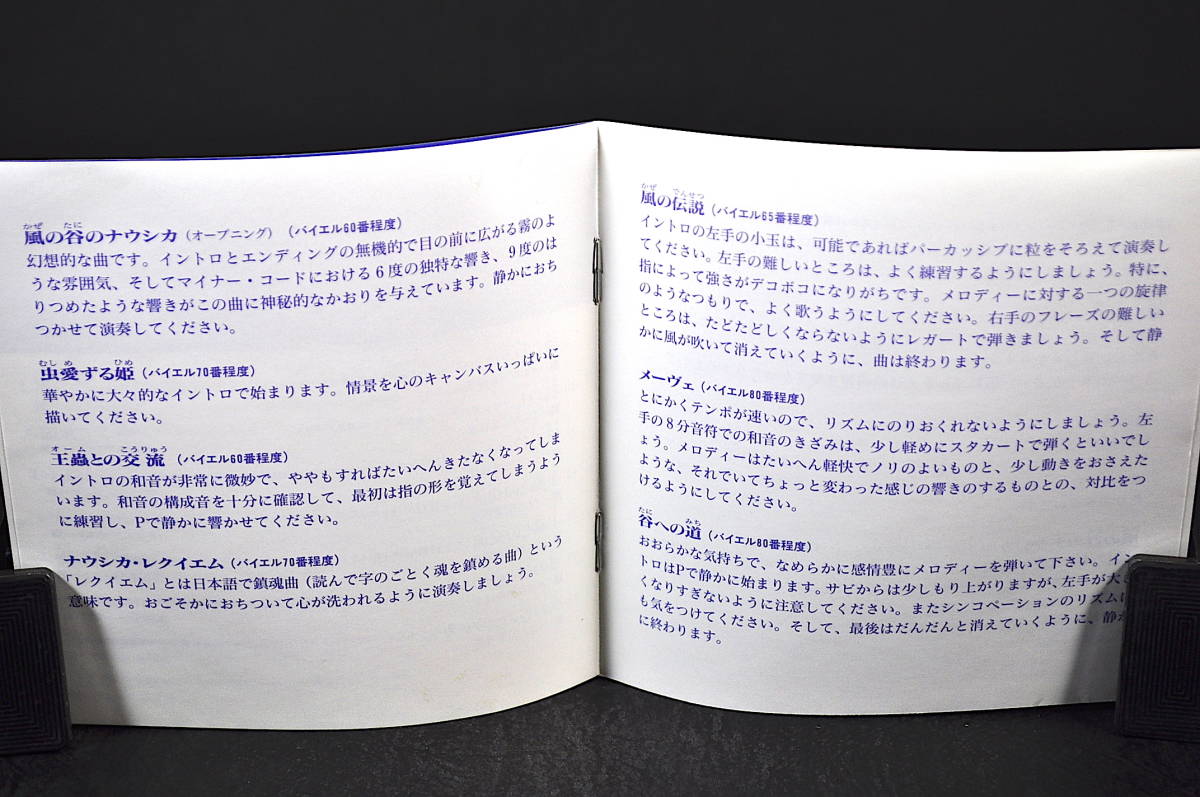 かぜ たに
風の谷のナウシカ（オープニング）（バイエル60番程度）
幻想的な曲です。イントロとエンディングの無機的で目の前に広がる霧のよ
うな雰囲気、そしてマイナー・コードにおける6度の独特な響き、9度のは
りつめたような響きがこの曲に神秘的なかおりを与えています。静かにおち
つかせて演奏してください。
むしめ ひめ
虫愛ずる姫（バイエル70番程度）
華やかに大々的なイントロで始まります。情景を心のキャンバスいっぱいに
描いてください。
オーム こうりゅう
王蟲との交流（バイエル60番程度）
イントロの和音が非常に微妙で、ややもすればたいへんきたなくなってしま
います。和音の構成音を十分に確認して、最初は指の形を覚えてしまうよう
に練習し、Pで静かに響かせてください。
ナウシカ・レクイエム（バイエル70番程度）
「レクイエム」とは日本語で鎮魂曲（読んで字のごとく魂を鎮める曲）という
意味です。おごそかにおちついて心が洗われるように演奏しましょう。
かぜ でんせつ
風の伝説（バイエル65番程度）
イントロの左手の小玉は、可能であればパーカッシブに粒をそろえて演奏し
てください。左手の難しいところは、よく練習するようにしましょう。特に、
指によって強さがデコボコになりがちです。メロディーに対する一つの旋律
のようなつもりで、よく歌うようにしてください。右手のフレーズの難しい
ところは、たどたどしくならないようにレガートで弾きましょう。そして静
かに風が吹いて消えていくように、曲は終わります。
メーヴェ（バイエル80番程度）
とにかくテンポが速いので、リズムにのりおくれないようにしましょう。左
手の8分音符での和音のきざみは、少し軽めにスタカートで弾くといいでし
ょう。メロディーはたいへん軽快でノリのよいものと、少し動きをおさえた
ような、それでいてちょっと変わった感じの響きのするものとの、対比をつ
けるようにしてください。
たに みち
谷への道（バイエル80番程度）
おおらかな気持ちで、なめらかに感情豊にメロディーを弾いて下さい。イン
トロはPで静かに始まります。サビからは少しもり上がりますが、左手が大き
くなりすぎないように注意してください。またシンコペーションのリズムに
も気をつけてください。そして、最後はだんだんと消えていくように、静か
に終わります。